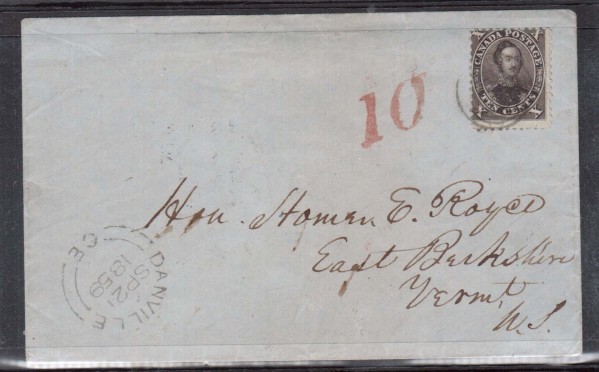 CANADA POSTAGE
TEN CENTS
X X
10
Hon. Homer E. Royce
East Berkshire
Vermt.
U.S.
DANVILLE
SP 21
1859
CE